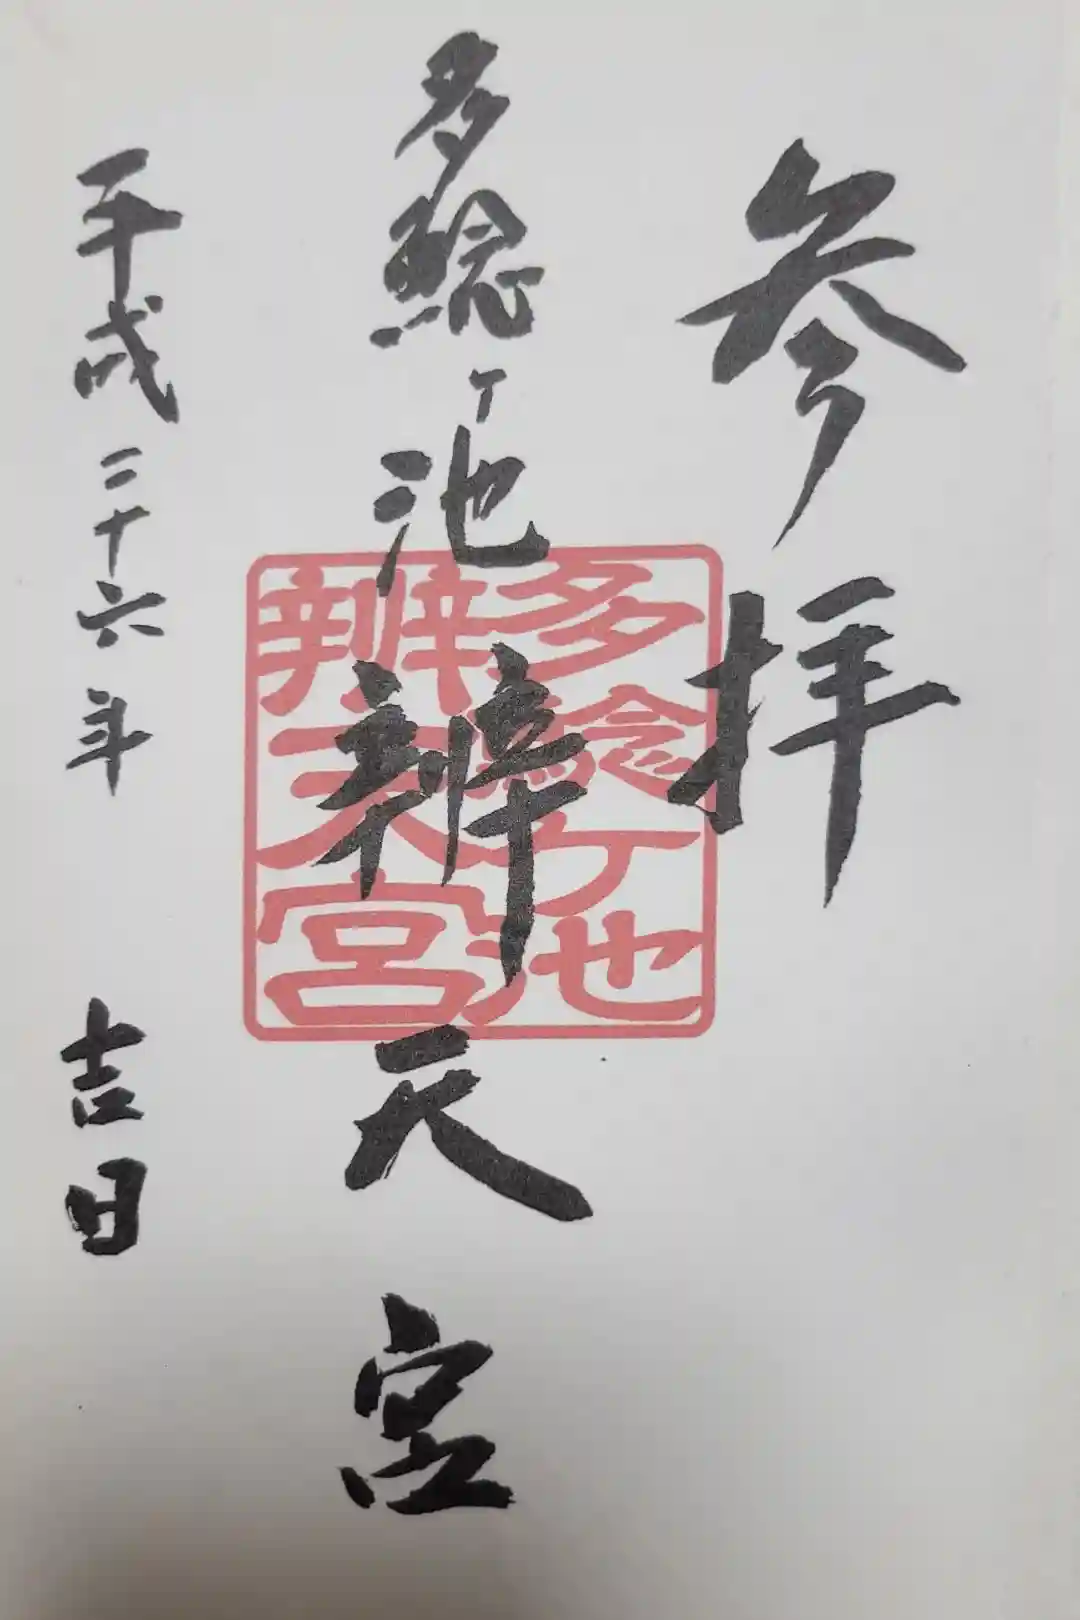 参拝
多鯰ヶ池辨天宮
平成二十六年 吉日
多鯰ヶ池
辨天宮